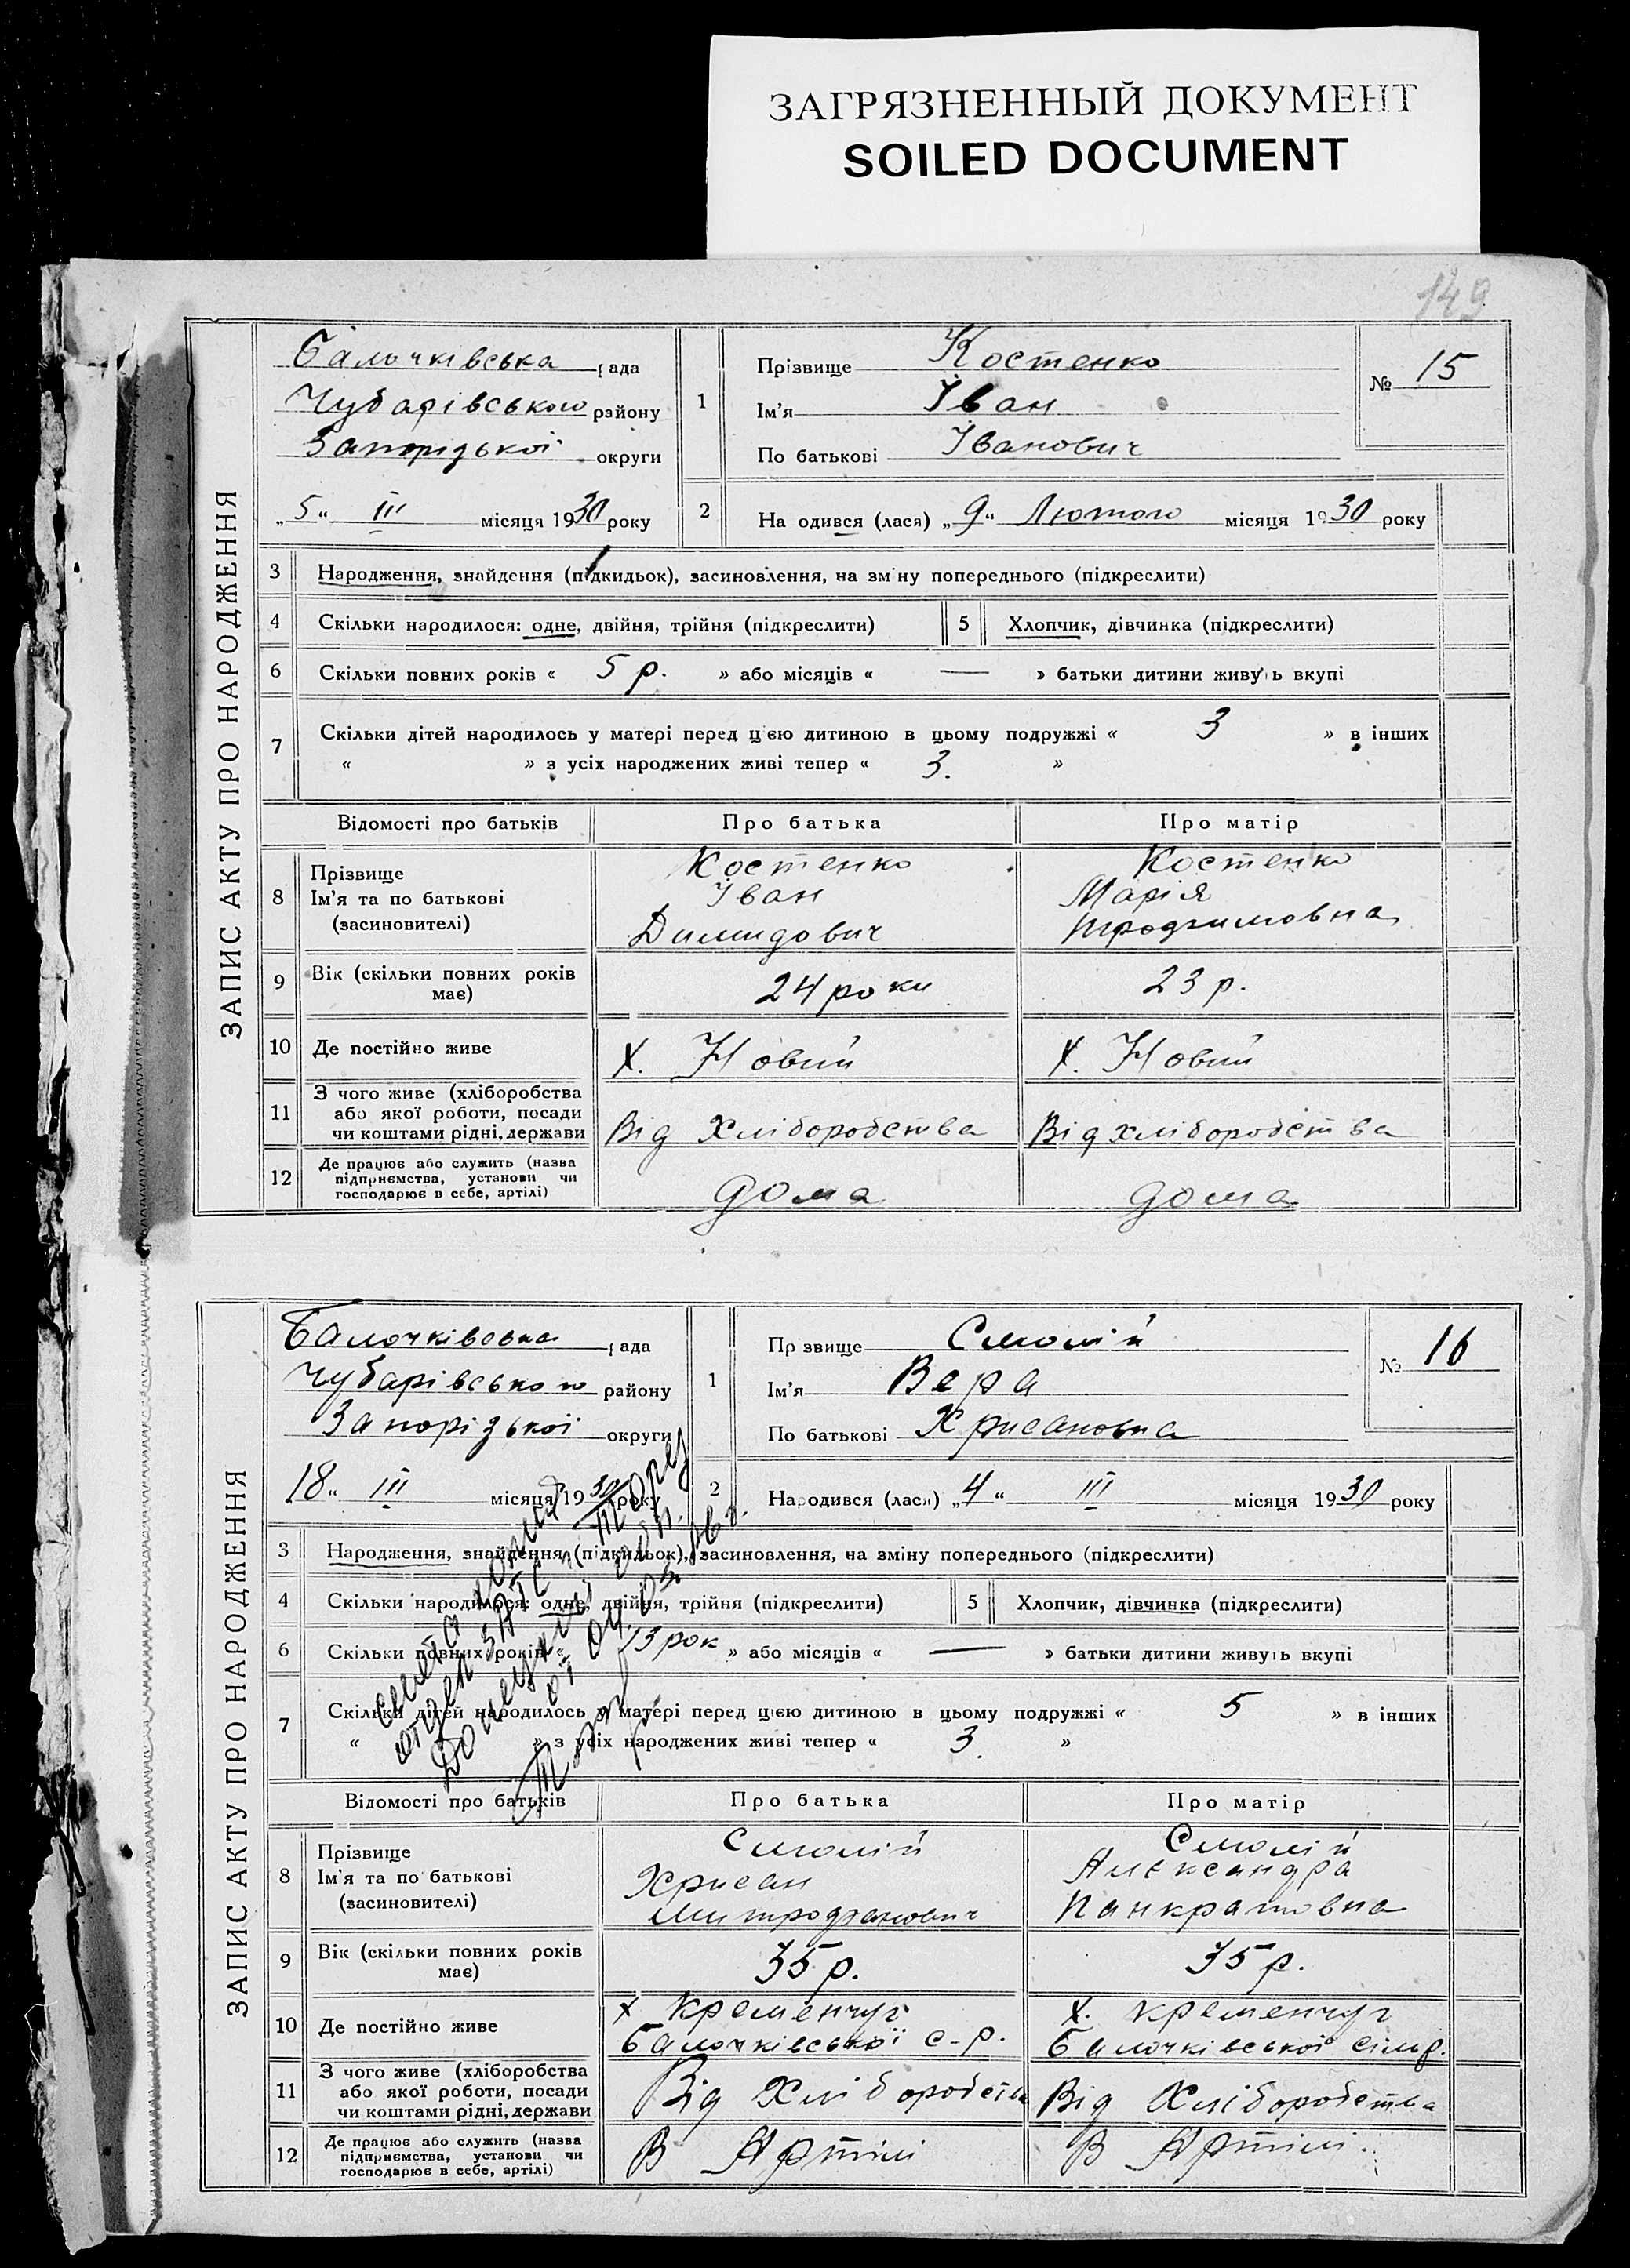 ЗАГРЯЗНЕННЫЙ ДОКУМЕНТ
SOILED DOCUMENT
149
ЗАПИС АКТУ ПРО НАРОДЖЕННЯ
Балочківська рада
Чубарівського району
Запорізької округи
„5“ III місяця 1930 року
1
Прізвище Костенко
Ім'я Іван
По батькові Іванович
№ 15
2 Народився (лася) „9“ Лютого місяця 1930 року
3 Народження, знайдення (підкидьок), засиновлення, на зміну попереднього (підкреслити)
4 Скільки народилося: одне, двійня, трійня (підкреслити) 5 Хлопчик, дівчинка (підкреслити)
6 Скільки повних років « 5 р. » або місяців « — » батьки дитини живуть вкупі
7 Скільки дітей народилось у матері перед цією дитиною в цьому подружжі « 3 » в інших
« » з усіх народжених живі тепер « 3. »
Відомості про батьків Про батька Про матір
8 Прізвище Костенко Костенко
Ім'я та по батькові Іван Марія
(засиновителі) Димидович Трофимовна
9 Вік (скільки повних років має) 24 роки 23 р.
10 Де постійно живе х. Новий х. Новий
11 З чого живе (хліборобства
або якої роботи, посади
чи коштами рідні, держави Від Хліборобства Від хліборобства
12 Де працює або служить (назва
підприємства, установи чи
господарює в себе, артілі) дома дома
ЗАПИС АКТУ ПРО НАРОДЖЕННЯ
Балочківська рада
Чубарівського району
Запорізької округи
18“ III місяця 1930 року
1
Прізвище Смолій
Ім'я Вера
По батькові Хрисановна
№ 16
2 Народився (лася) „4“ III місяця 1930 року
3 Народження, знайдення (підкидьок), засиновлення, на зміну попереднього (підкреслити)
4 Скільки народилося: одне, двійня, трійня (підкреслити) 5 Хлопчик, дівчинка (підкреслити)
6 Скільки повних років « 13 рок » або місяців « — » батьки дитини живуть вкупі
7 Скільки дітей народилось у матері перед цією дитиною в цьому подружжі « 5 » в інших
« » з усіх народжених живі тепер « 3. »
копия
отдел ЗАГС
Донецкий обл.
Відомості про батьків Про батька Про матір
8 Прізвище Смолій Смолій
Ім'я та по батькові Хрисан Александра
(засиновителі) Митрофанович Панкратовна
9 Вік (скільки повних років має) 35 р. 35 р.
10 Де постійно живе х Кременчуг х. Кременчуг
Балочківської с-р. Балочківської сільр.
11 З чого живе (хліборобства
або якої роботи, посади
чи коштами рідні, держави Від Хліборобств Від Хліборобства
12 Де працює або служить (назва
підприємства, установи чи
господарює в себе, артілі) В Артілі В Артілі.